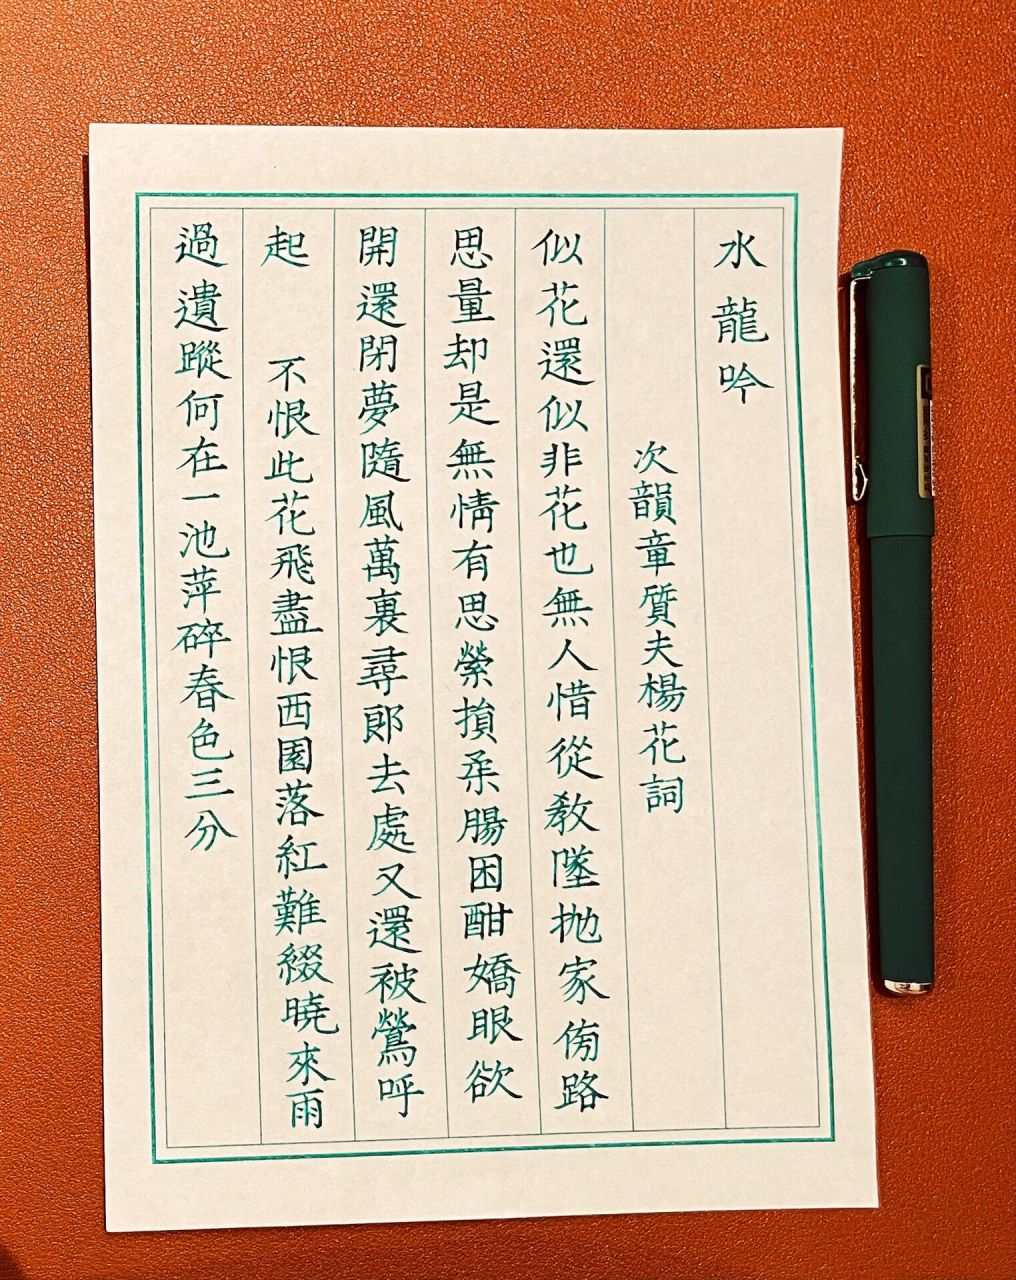 水龍吟
次韻章質夫楊花詞
似花還似非花也無人惜從教墜抛家傍路
思量却是無情有思縈損柔腸困酣嬌眼欲
開還閉夢隨風萬裏尋郎去處又還被鶯呼
起 不恨此花飛盡恨西園落紅難綴曉來雨
過遺蹤何在一池萍碎春色三分